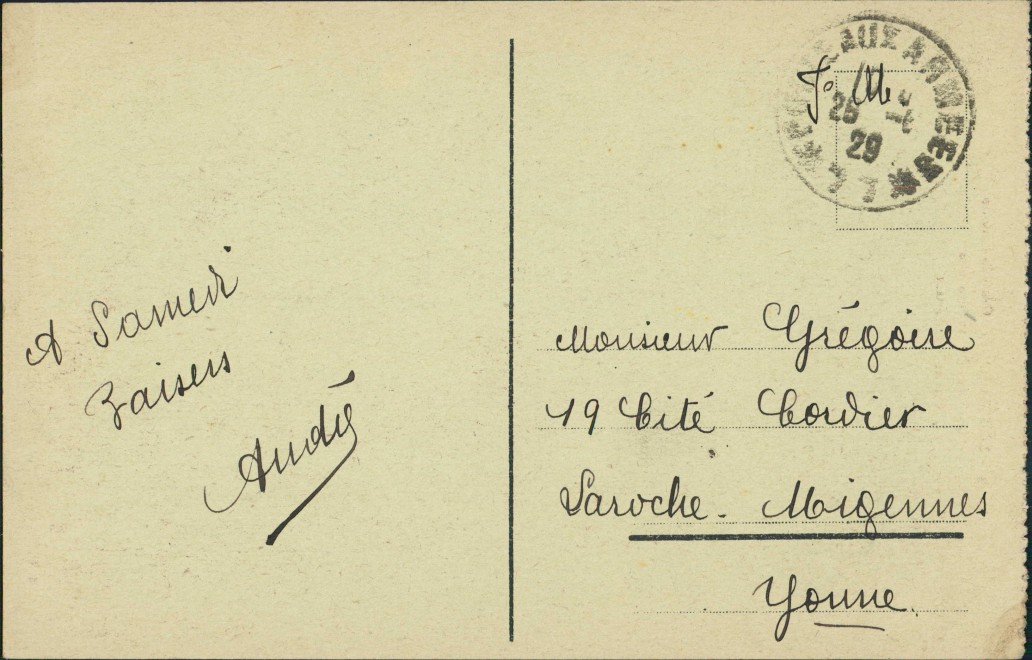 A Samedi
Baisers
André
F. M.
AUX ARMEES
29
Monsieur Grégoire
19 Cité Cordier
Laroche-Migennes
Yonne